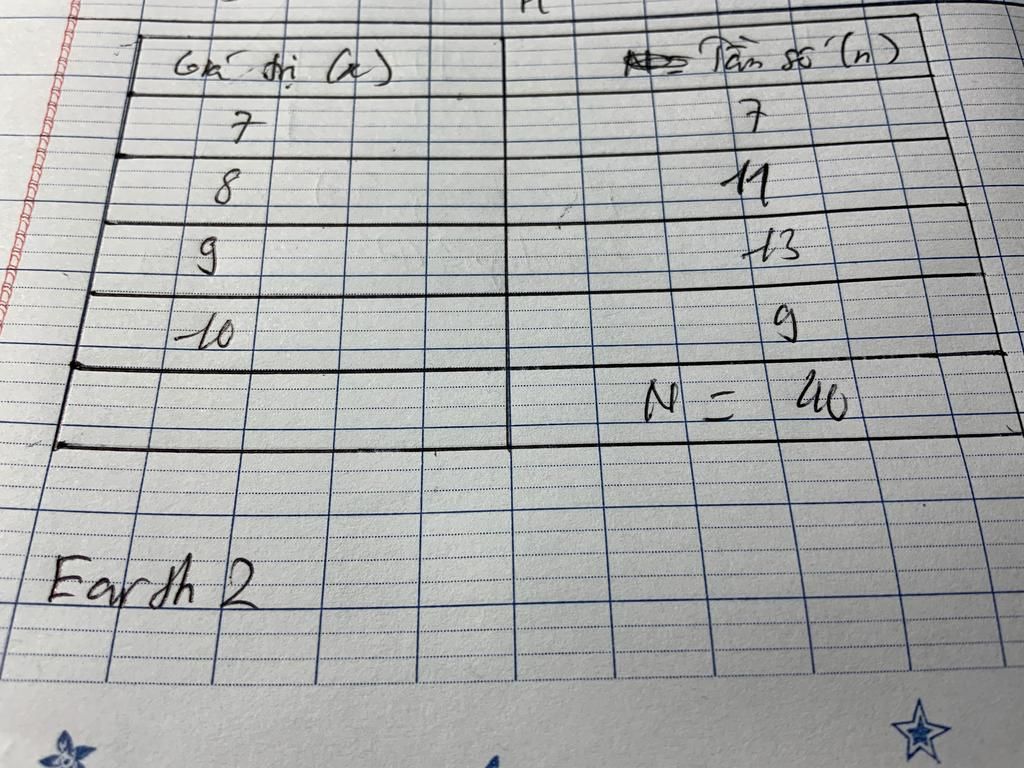 Giá trị (x) Tần số (n)
7 7
8 11
9 13
10 9
N = 40
Earth 2